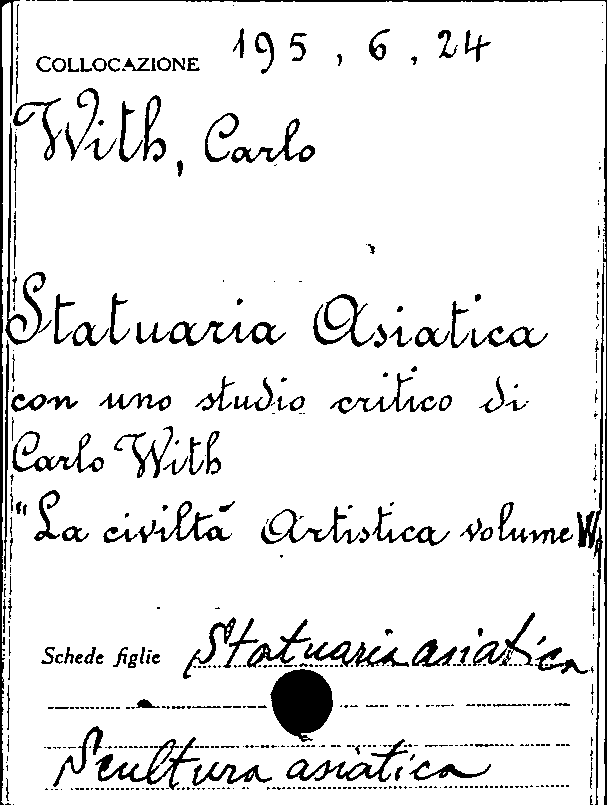 COLLOCAZIONE 195, 6, 24
With, Carlo
Statuaria Asiatica
con uno studio critico di
Carlo With
"La civiltà Artistica volume
Schede figlie Statuaria asiatica
Scultura asiatica